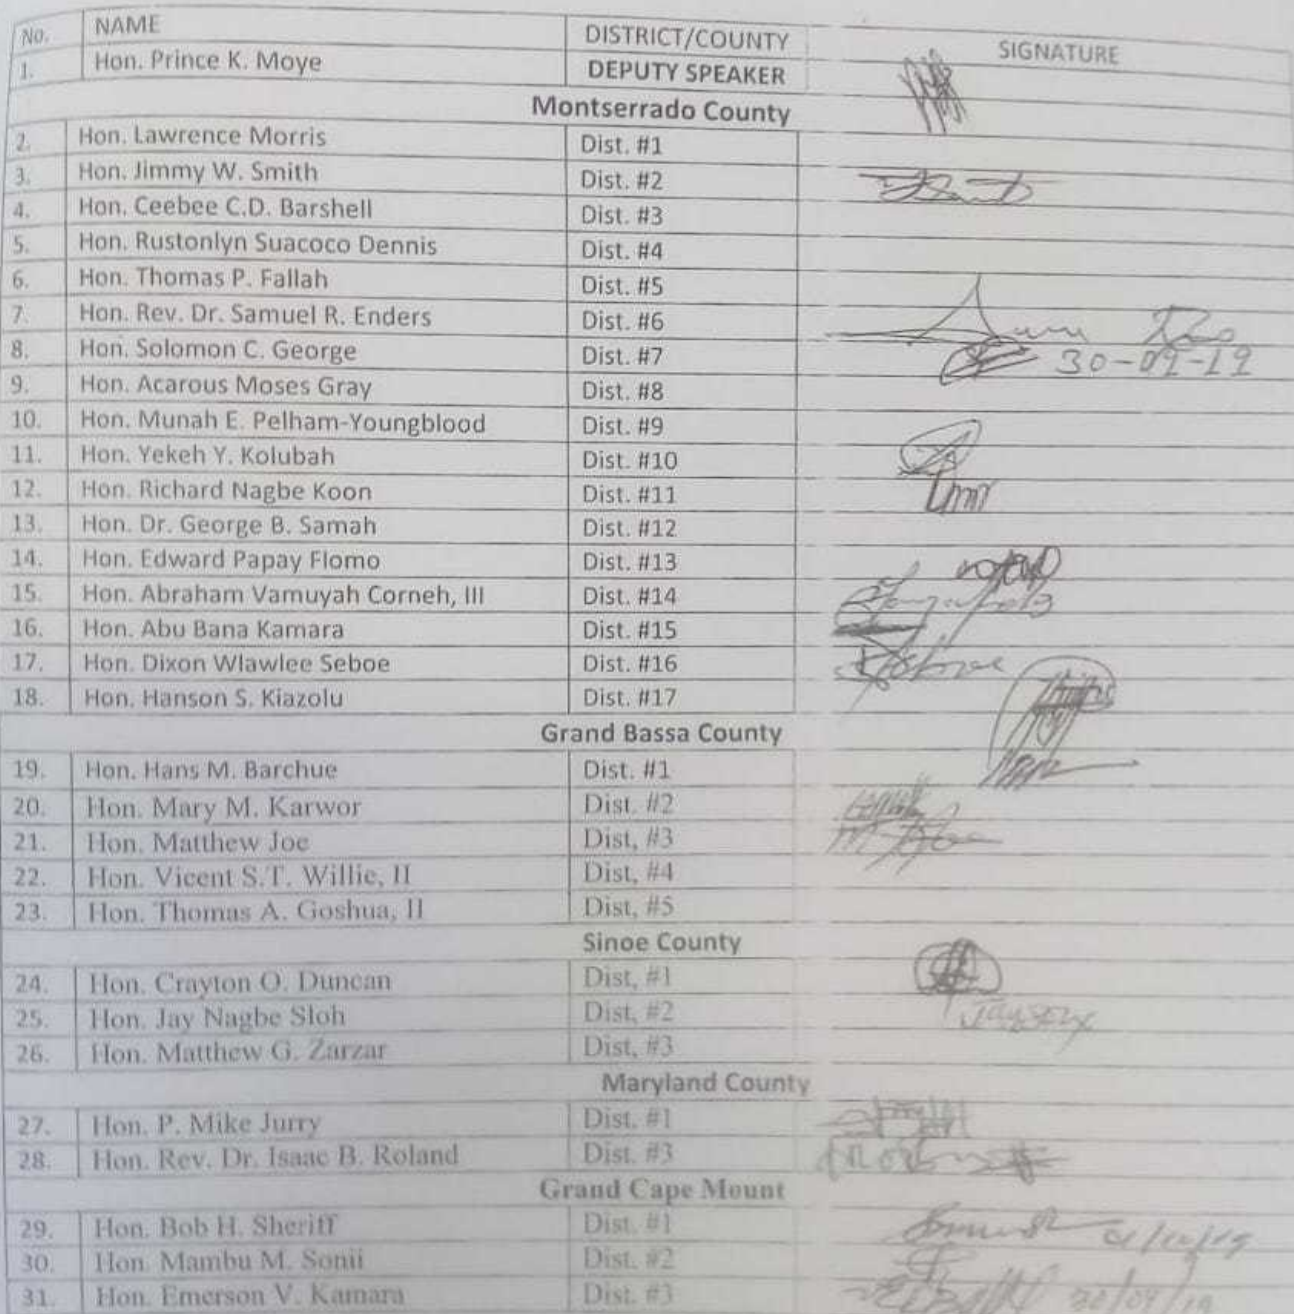 No. NAME DISTRICT/COUNTY SIGNATURE
1. Hon. Prince K. Moye DEPUTY SPEAKER
Montserrado County
2. Hon. Lawrence Morris Dist. #1
3. Hon. Jimmy W. Smith Dist. #2
4. Hon. Ceebee C.D. Barshell Dist. #3
5. Hon. Rustonlyn Suacoco Dennis Dist. #4
6. Hon. Thomas P. Fallah Dist. #5
7. Hon. Rev. Dr. Samuel R. Enders Dist. #6
8. Hon. Solomon C. George Dist. #7 30-09-19
9. Hon. Acarous Moses Gray Dist. #8
10. Hon. Munah E. Pelham-Youngblood Dist. #9
11. Hon. Yekeh Y. Kolubah Dist. #10
12. Hon. Richard Nagbe Koon Dist. #11
13. Hon. Dr. George B. Samah Dist. #12
14. Hon. Edward Papay Flomo Dist. #13
15. Hon. Abraham Vamuyah Corneh, III Dist. #14
16. Hon. Abu Bana Kamara Dist. #15
17. Hon. Dixon Wlawlee Seboe Dist. #16
18. Hon. Hanson S. Kiazolu Dist. #17
Grand Bassa County
19. Hon. Hans M. Barchue Dist. #1
20. Hon. Mary M. Karwor Dist. #2
21. Hon. Matthew Joe Dist, #3
22. Hon. Vicent S.T. Willie, II Dist, #4
23. Hon. Thomas A. Goshua, II Dist, #5
Sinoe County
24. Hon. Crayton O. Duncan Dist, #1
25. Hon. Jay Nagbe Sloh Dist, #2
26. Hon. Matthew G. Zarzar Dist, #3
Maryland County
27. Hon. P. Mike Jurry Dist. #1
28. Hon. Rev. Dr. Isaac B. Roland Dist. #3
Grand Cape Mount
29. Hon. Bob H. Sheriff Dist. #1
30. Hon. Mambu M. Sonii Dist. #2
31. Hon. Emerson V. Kamara Dist. #3 30/09/19